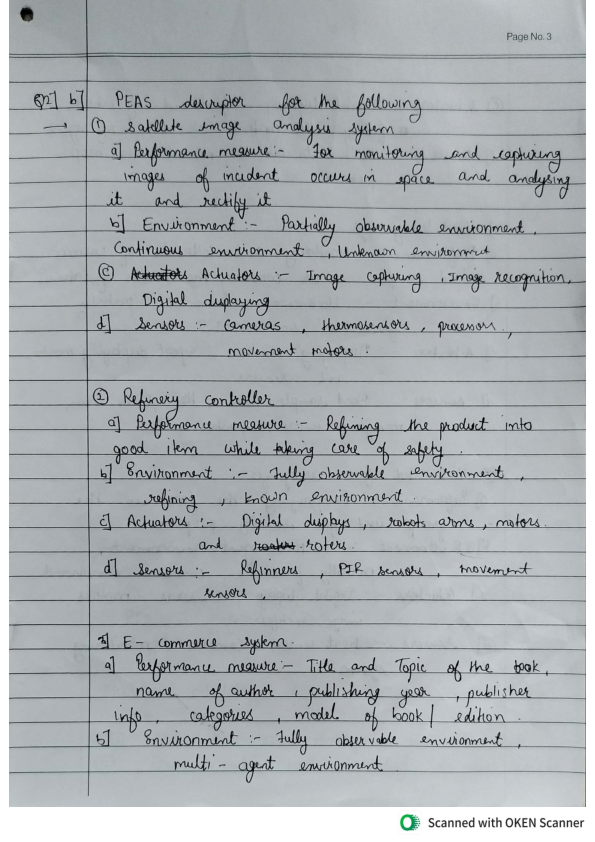 Page No. 3
Q2] b] PEAS descriptor for the following
→ ① satellite image analysis system
a] Performance measure :- For monitoring and capturing
images of incident occurs in space and analysing
it and rectify it
b] Environment :- Partially observable environment,
Continuous environment, Unknown environment
ⓒ Actuators Actuators :- Image capturing, Image recognition,
Digital displaying
d] Sensors :- Cameras, thermosensors, processors,
movement motors.
② Refinery controller
a] Performance measure :- Refining the product into
good item while taking care of safety.
b] Environment :- Fully observable environment,
refining, known environment.
c] Actuators :- Digital displays, robots arms, motors
and roters.
d] Sensors :- Refinners, PIR sensors, movement
sensors,
3] E-commerce system.
a] Performance measure :- Title and Topic of the book,
name of author, publishing year, publisher
info, categories, model of book / edition.
b] Environment :- Fully observable environment,
multi-agent environment
Scanned with OKEN Scanner